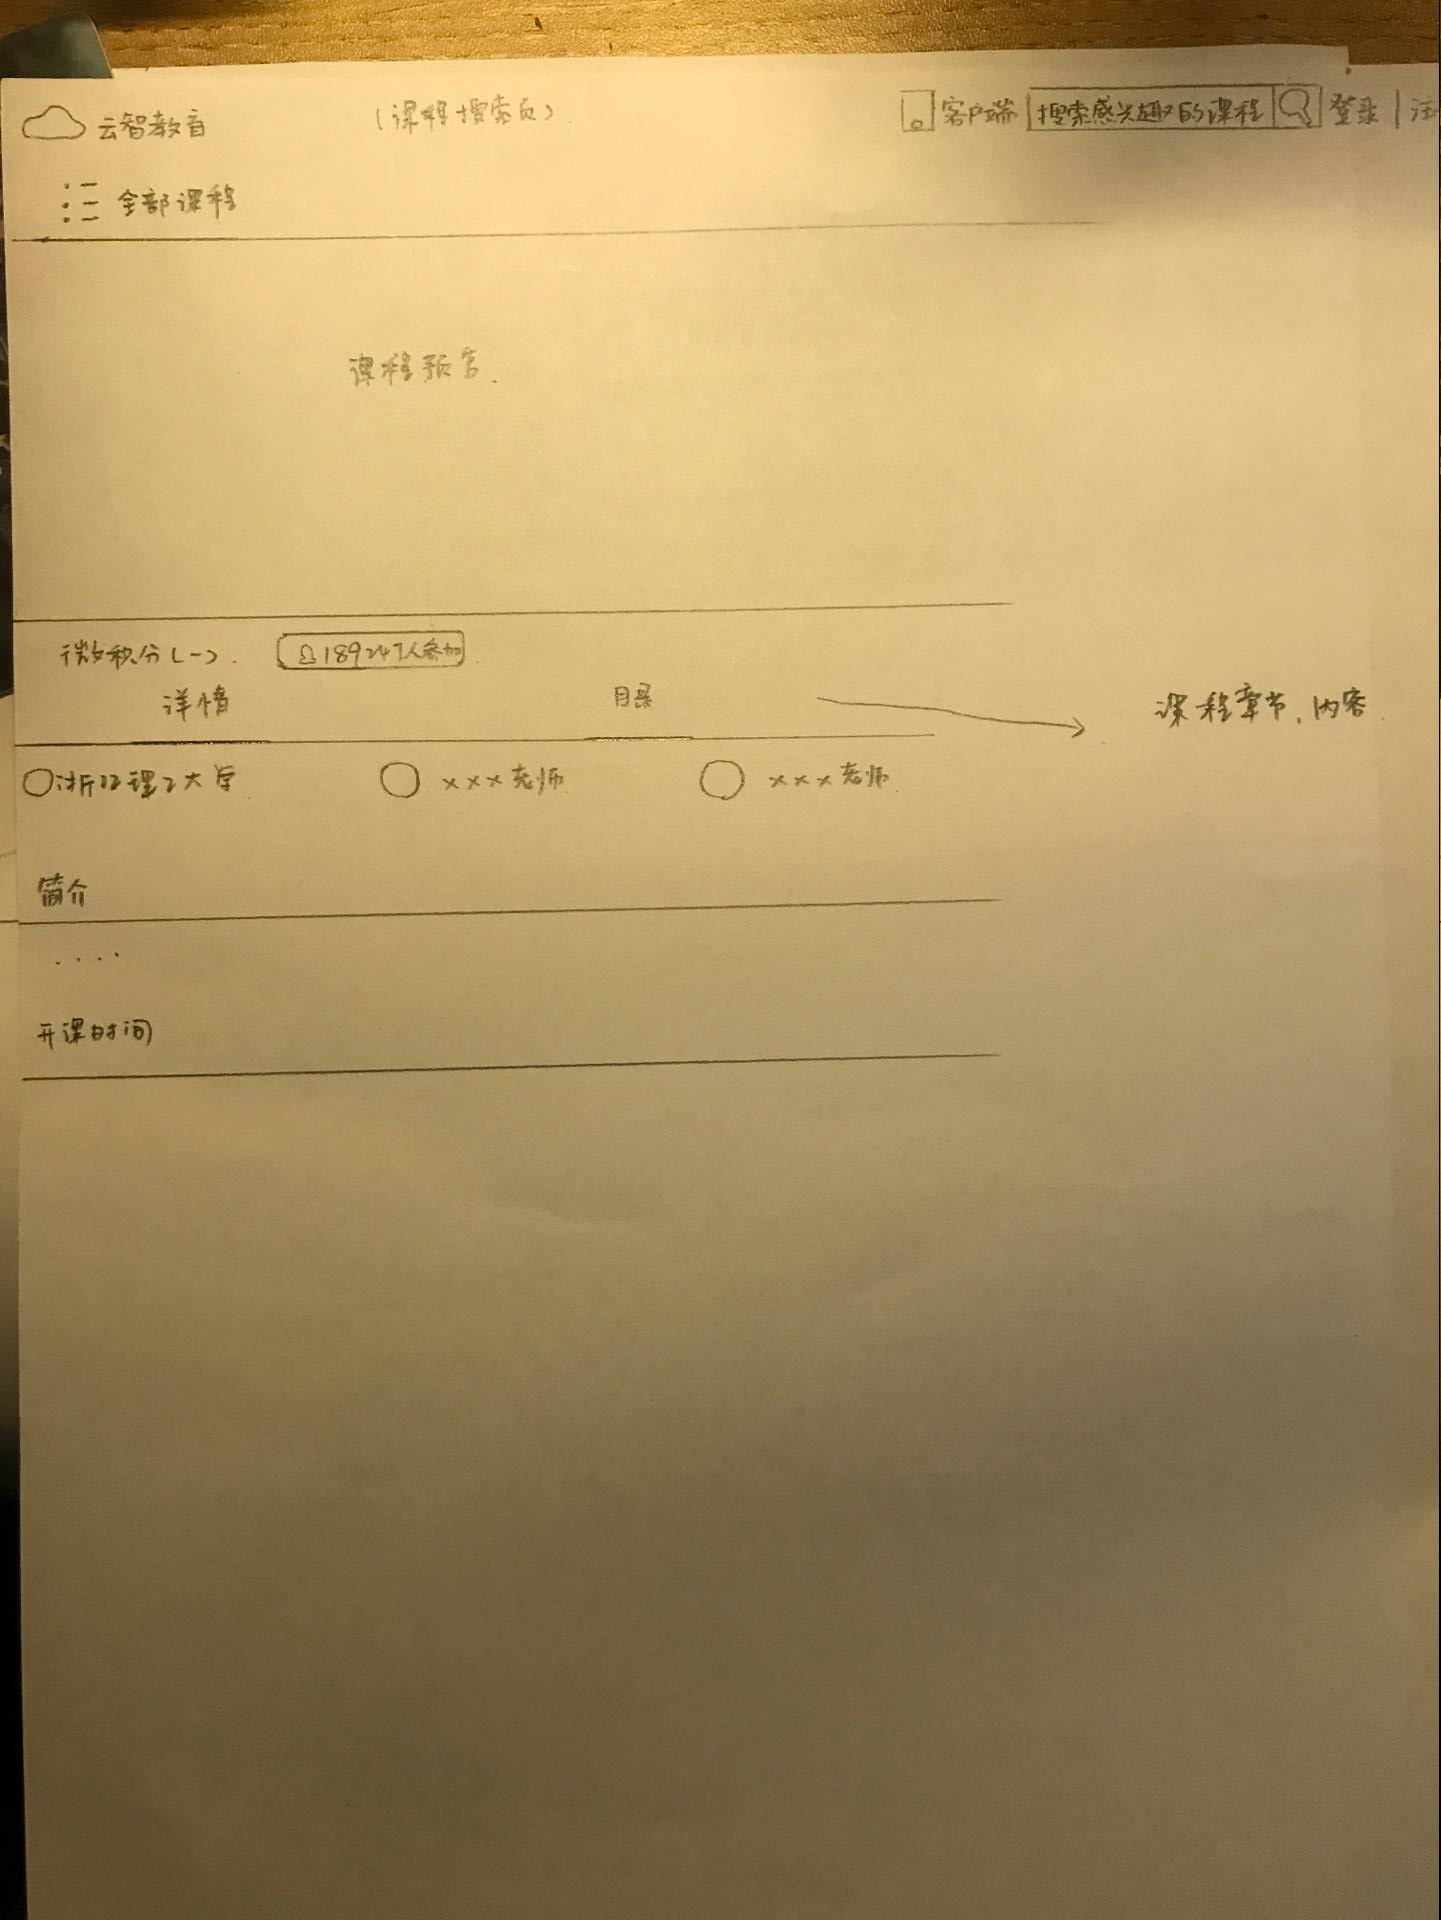 云智教育 (课程搜索页) 客户端 搜索感兴趣的课程 登录 | 注
全部课程
课程预告.
微积分(一). 189247人参加
详情 目录 课程章节、内容
浙江理工大学 xxx老师 xxx老师
简介
....
开课时间